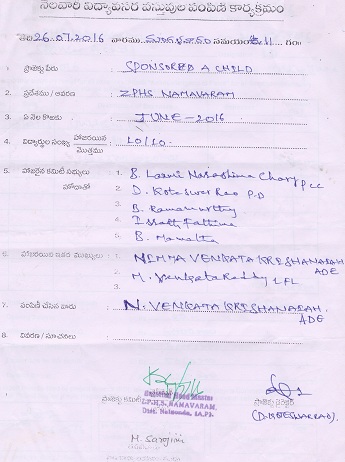 నెలవారి విద్యావసర వస్తువుల పంపిణీ కార్యక్రమం
తేది 26.07.2016 వారము మంగళవారం సమయం 11 గం॥
1. ప్రాజెక్టు పేరు : SPONSORED A CHILD
2. ప్రదేశము / ఆవరణ : ZPHS NAMAVARAM
3. ఏ నెల కొరకు : JUNE-2016
4. విద్యార్థుల సంఖ్య హాజరయిన / మొత్తము : 20/20.
5. హాజరైన కమిటీ సభ్యులు హోదాతో : 1. B. Laxmi Narashima Chary PCC
2. D. Koteswar Rao P.D
3. B. Ramamurthy
4.
5. B. Mamatha
6. హాజరయిన ఇతర ముఖ్యులు : 1. NEMMA VENKATA KRISHANARAM ADE
2. M. Venkata Reddy LFL
3.
7. పంపిణీ చేసిన వారు : N. VENKATA KRISHANARAM. ADE
8. వివరణ / సూచనలు :
ప్రాజెక్టు కమిటీ
Head Master
Z.P.H.S. NAMAVARAM,
Dist. Nalgonda, (A.P).
ప్రాజెక్టు డైరెక్టర్
(D.KOTESWARRAO).
M. Sarojini